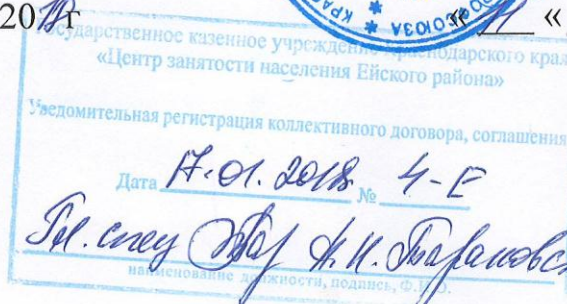 2018 г « 11 «
КРАС * СОЮЗА *
Государственное казенное учреждение Краснодарского края
«Центр занятости населения Ейского района»
Уведомительная регистрация коллективного договора, соглашения
Дата 17.01.2018 № 4-Е
Гл. спец Н. Тарановс
наименование должности, подпись, Ф.И.О.